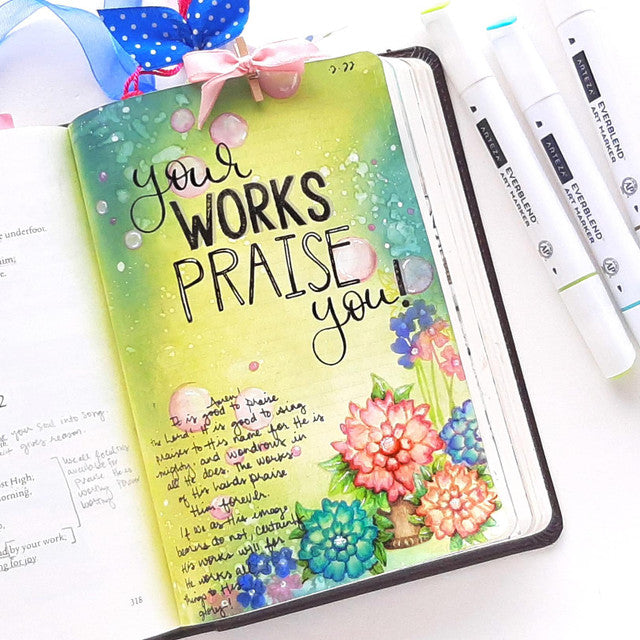 e underfoot.
him;
e.
2
your Soul into song
it gives reason
Most High,
morning,
ad by your work,
ng for joy.
318
2.22
your
WORKS
PRAISE
you!
Amen!
It is good to praise
the Lord! It is good to sing
praises to His name for He is
mighty, and wondrous in
all He does. The works
of His hands praise
Him forever.
If we as His image
bearers do not, certainly
His works will for
He works all
things to His
glory!
ARTEZA
EVERBLEND
ART MARKER
AP
ARTEZA
EVERBLEND
ART MARKER
AP
ARTEZA
EVERBLEND
ART MARKER